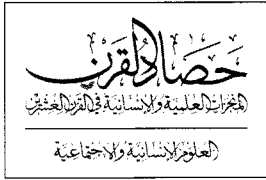 حصاد القرن
المنجزات العلمية والإنسانية في القرن العشرين
العلوم الإنسانية والاجتماعية